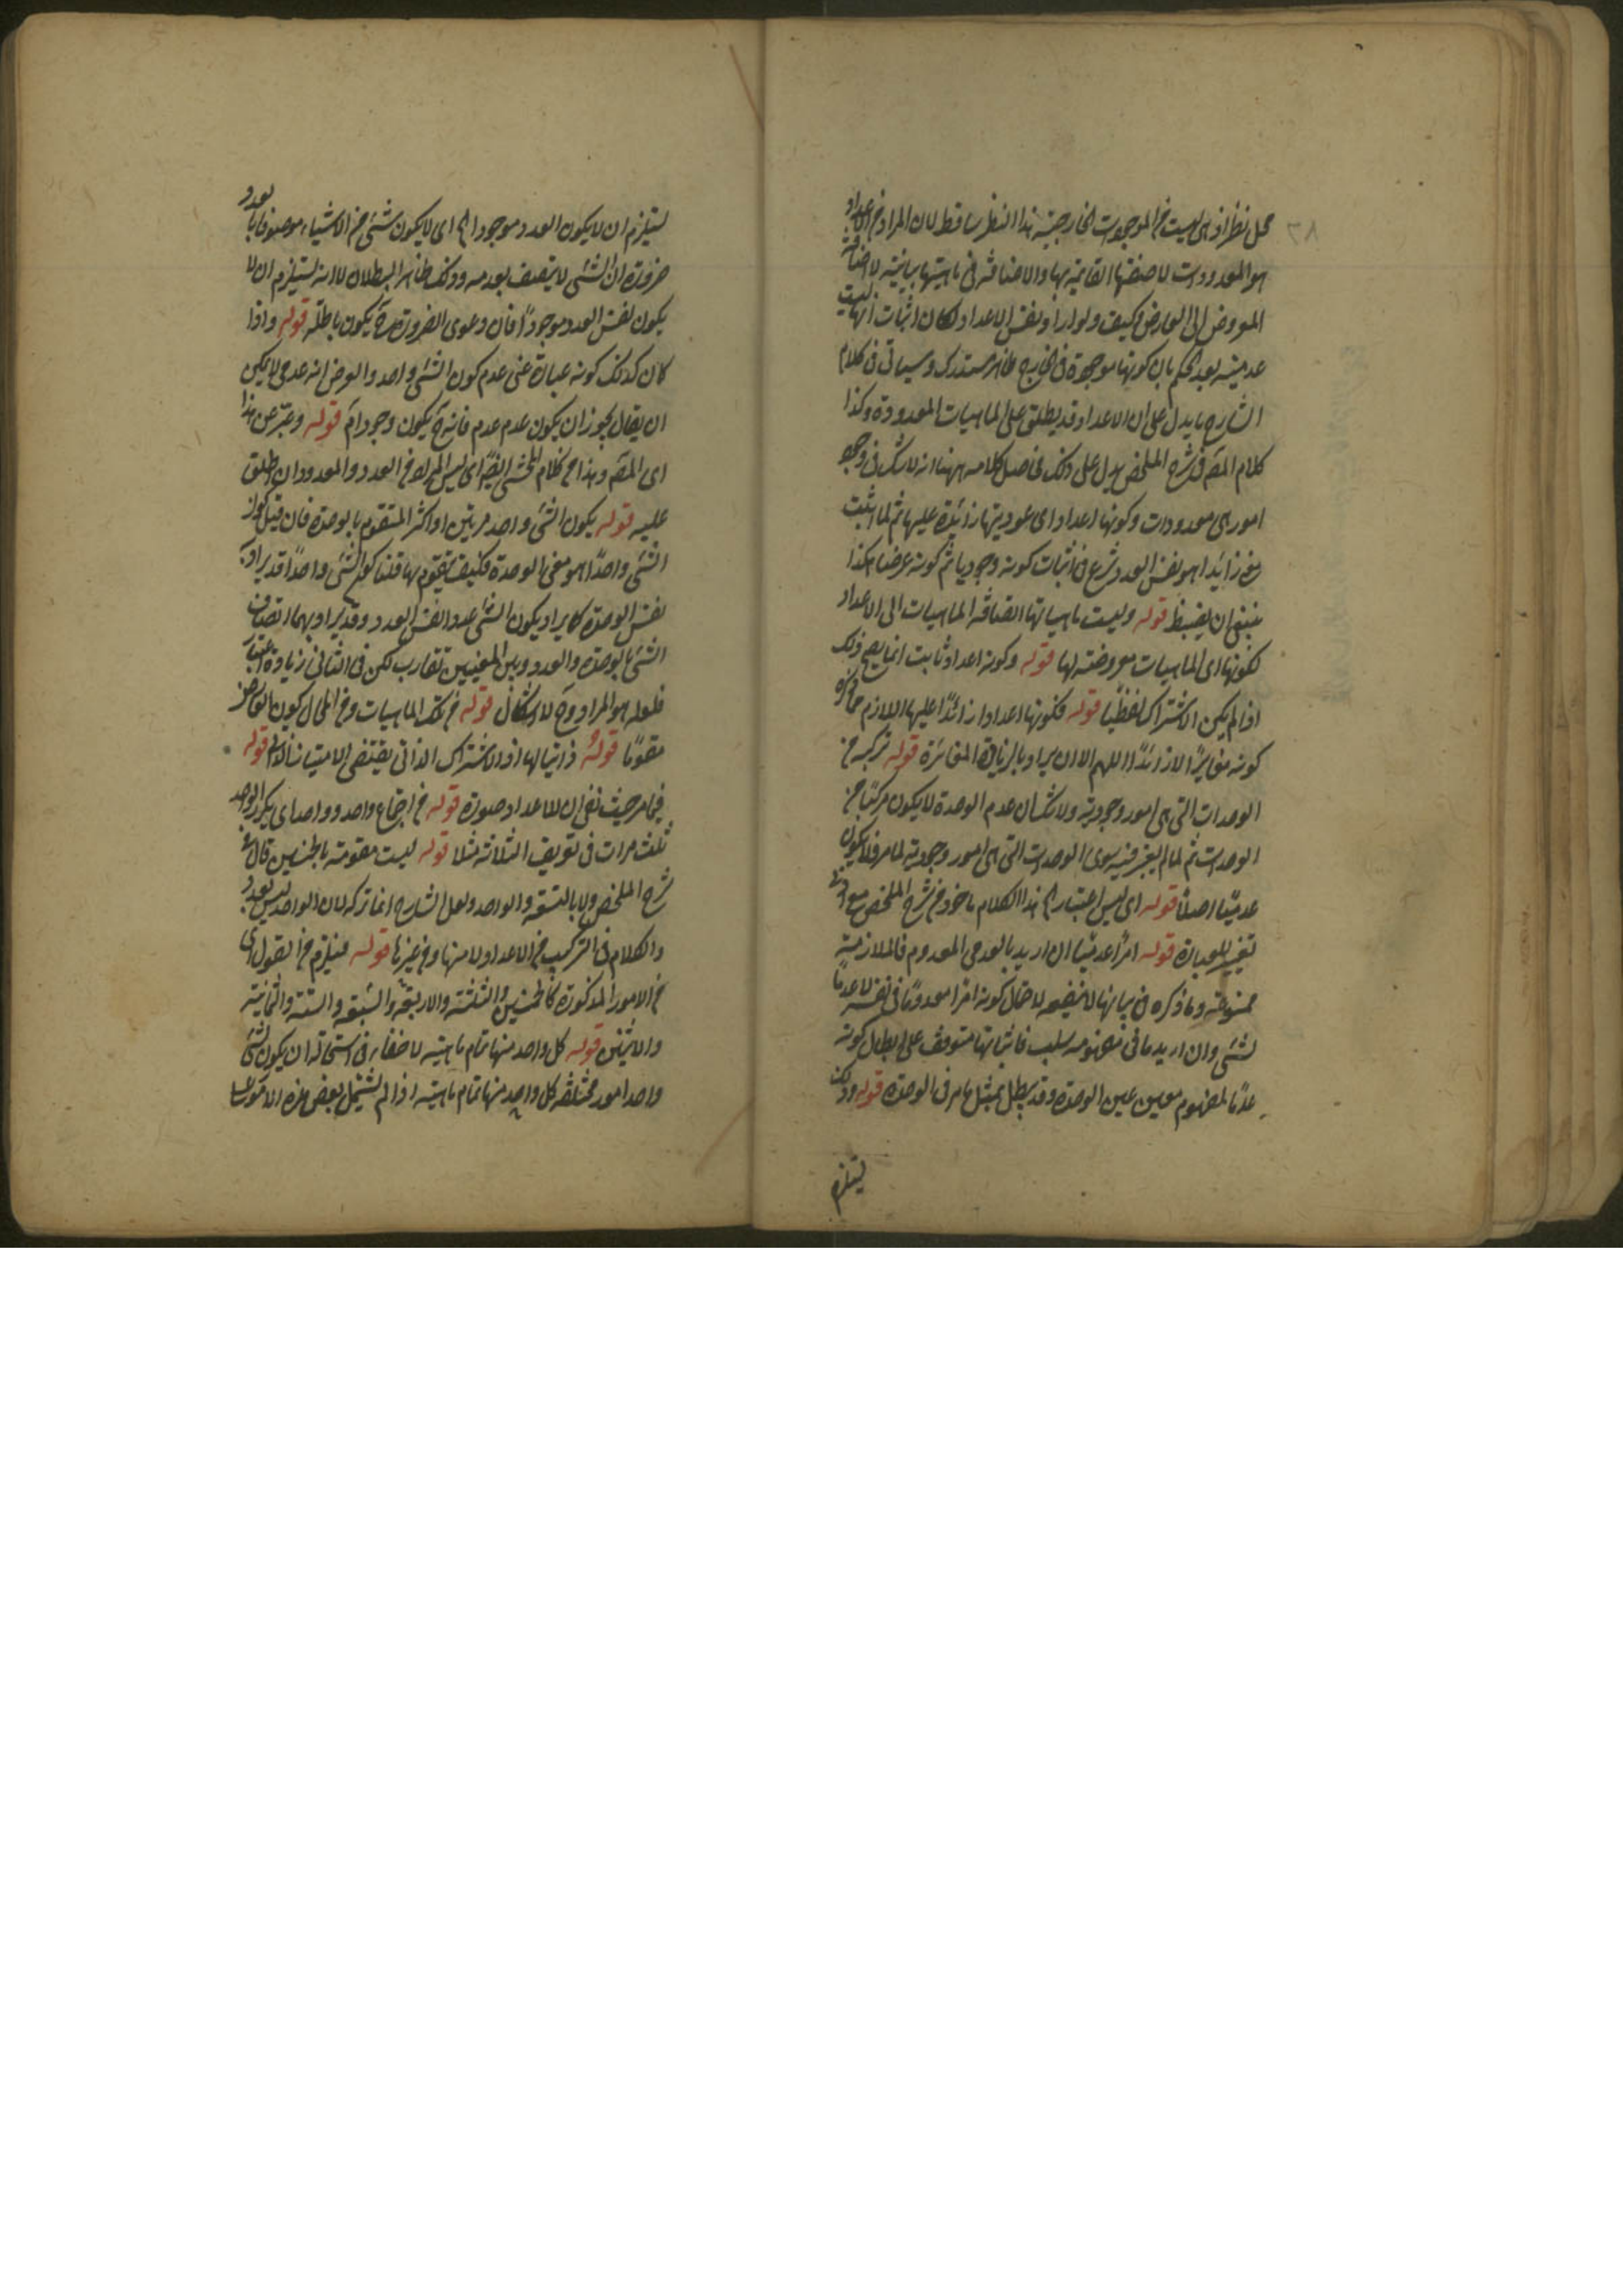 محل نظر اذ هى ليست من الموجودات الخارجية هذا النظر ساقط لان المراد من الاعداد
هو المعدودات لا صفتها القائمة بها والاضافة فى ماهيتها مباينة لاضافة
المعروض الى العارض وكيف ولو اراد نفس الاعداد لكان اثبات انها ليست
عدمية بعد الحكم بان كونها موجودة فى الخارج ظاهر مستدرك وسياتى فى كلام
الشارح ما يدل على ان الاعداد قد يطلق على الماهيات المعدودة وكذا
كلام المصَ فى شرح الملخص يدل على ذلك فحاصل كلامه ههنا انه لا شك فى وجود
امور هى معدودات وكونها اعدادا اى عدديتها زائدة عليها ثم لما اثبت
زائدا هو نفس العدد شرع فى اثبات كونه وجوديا ثم كونه عرضا هكذا
ينبغى ان يضبط قوله وليست ماهياتها اضافة الماهيات الى الاعداد
لكونها اى الماهيات معروضة لها قوله وكونه اعداد ثابت انما يصح ذلك
اذا لم يكن الاشتراك لفظيًا قوله فكونها اعدادا زائدًا عليها اللازم مما ذكره
كونه مغايرًا لا زائدًا اللهم الا ان يراد بالزيادة المغائرة قوله تركبه من
الوحدات التى هى امور وجودية ولا شك ان عدم الوحدة لا يكون مركبًا من
الوحدات ثم لما لم يعتبر فيه سوى الوحدات التى هى امور وجودية لما مر فلا يكون
عدميًا اصلاً قوله اى ليس اعتباره اهَ هذا الكلام ماخوذ من شرح الملخص مع ادنى
تغيير للعبارة قوله امرًا عدميًا ان اريد بالعدمى المعدوم فالملازمة
ممنوعة وما ذكره فى بيانها لا يفيد لاحتمال كونه امرا معدومًا فى نفسه لا عدمًا
لشئ وان اريد ما فى مفهومه سلب فاثباتها متوقف على ابطال كونه
عدمًا لمفهوم معين غير الوحدة وقد يبطل بمثل ما مر فى الوحدة قوله وذلك
يستلزم
يستلزم ان لا يكون العدد موجودا اهَ اى لا يكون شئ من الاشياء موصوفا بالعدد
ضرورة ان الشئ لا يتصف بعدمه وذلك ظاهر البطلان لا انه يستلزم ان لا
يكون نفس العدد موجودًا فان دعوى الضرورة حَ يكون باطلة قوله واذا
كان كذلك كونه عبارة عن عدم كون الشئ واحد والفرض انه عدمى لا يمكن
ان يقال يجوز ان يكون عدم عدم فانه حَ يكون وجوداَ قوله وعبّر عن هذا
اى المصَ وهذا من كلام المحشى ايضًا اى ليس المراد من العدد والمعدود ان يطلق
عليه قوله يكون الشئ واحد مرتين او اكثر المتقوم بالوحدة فان قيل كون
الشئ واحدًا هو معنى الوحدة فكيف يتقوم بها قلنا كون الشئ واحدًا قد يراد به
نفس الوحدة كما يراد بكون الشئ عددا نفس العدد وقد يراد بهما اتصاف
الشئ بالوحدة والعدد وبين المعنيين تقارب لكن فى الثانى زيادة اعتبار
فلعله هو المراد وحَ لا اشكال قوله من تلك الماهيات ومن المحال كون العارض
مقومًا قوله ذاتيا لها اذ الاشتراك الذاتى يقتضى الامتياز الذاتى قوله
فيما مر حيث نفى ان للاعداد صورة قوله من اجتماع واحد وواحد اى يكرر الواحد
ثلث مرات فى تعريف الثلاثة مثلا قوله ليست مقومة بالخمسين قال فى
شرح الملخص ولا بالتسعة والواحد ولعل الشارح انما تركه لان الواحد ليس بعدد
والكلام فى التركيب من الاعداد لا منها ومن غيرها قوله فيلزم من القول اى
من الامور المذكورة كالخمسين والثلثة والاربعة والسبعة والستة والثمانية
والاثنين قوله كل واحد منها تمام ماهيته لا خفاء فى استحالة ان يكون لشئ
واحد امور مختلفة كل واحد منها تمام ماهيته اذا لم يشتمل بعض هذه الامور على